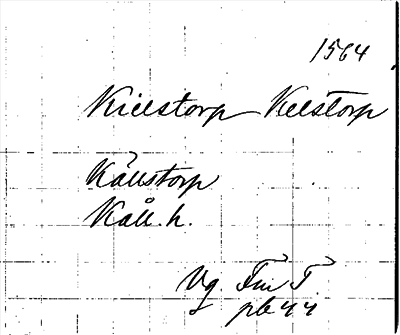 1564
Kielstorp Kelstorp
Kållstorp
Kåll. h.
Vg Fru T
pb 44